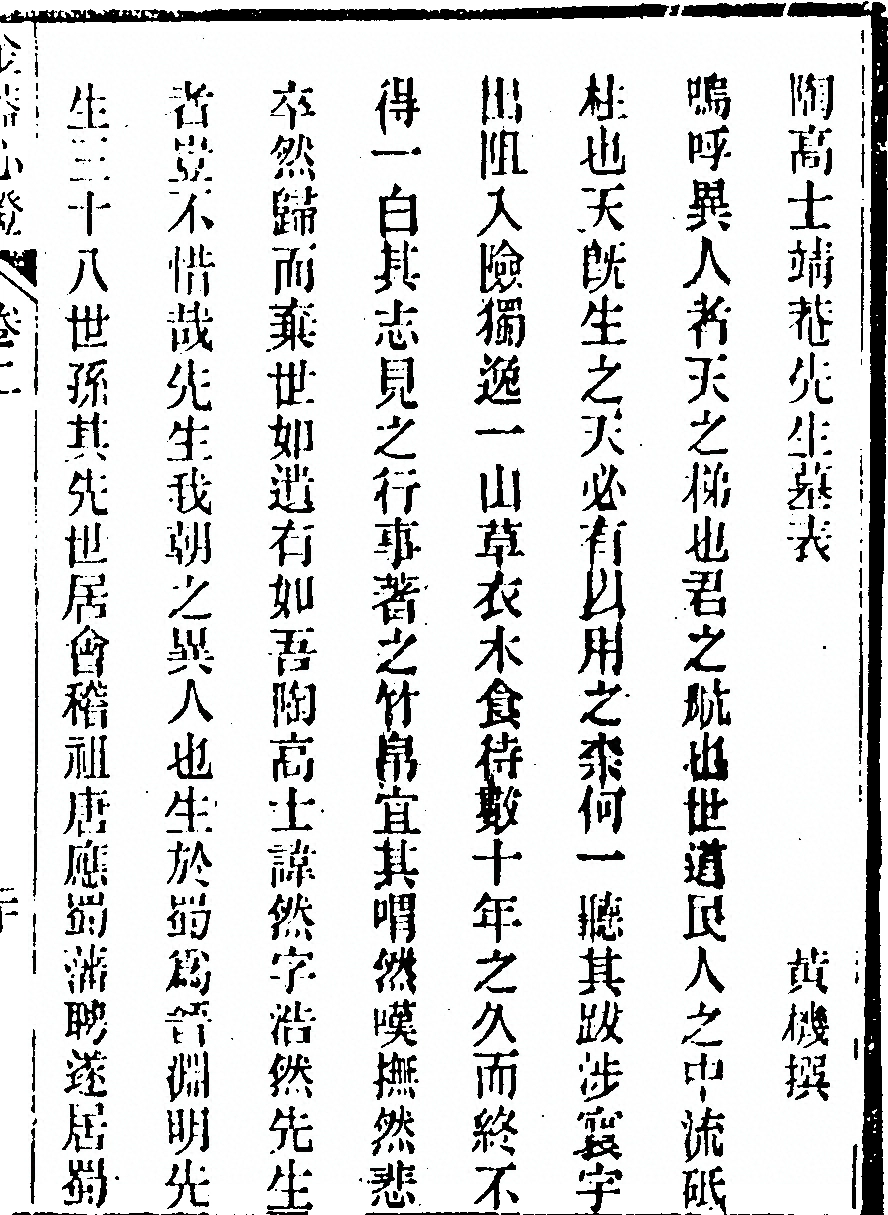 陶高士靖菴先生墓表 黄機撰
嗚呼異人者天之梯也君之航也世道民人之中流砥
柱也天既生之天必有以用之柰何一聽其跋涉寰宇
出阻入險獨逸一山草衣木食待數十年之久而終不
得一白其志見之行事著之竹帛宜其喟然嘆撫然悲
卒然歸而棄世如遺有如吾陶高士諱然字浩然先生
者豈不惜哉先生我朝之異人也生於蜀爲晉淵明先
生三十八世孫其先世居會稽祖唐應蜀藩聘遂居蜀
心證
卷二